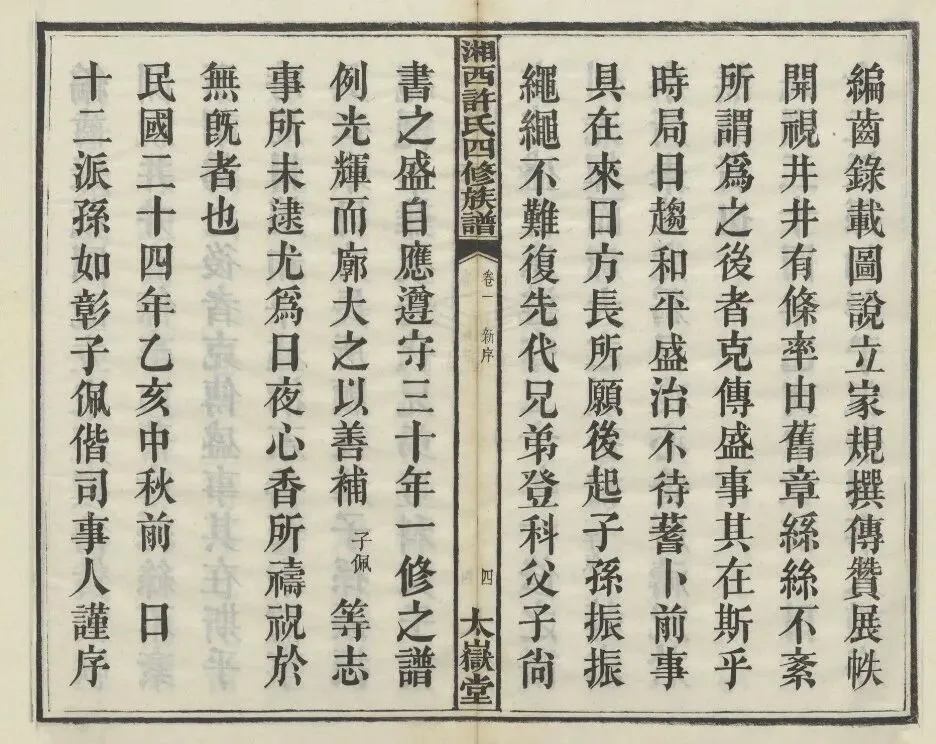 編齒錄載圖說立家規撰傳贊展帙
開視井井有條率由舊章絲絲不紊
所謂爲之後者克傳盛事其在斯乎
時局日趨和平盛治不待蓍卜前事
具在來日方長所願後起子孫振振
繩繩不難復先代兄弟登科父子尙
湘西許氏四修族譜
卷一 新序
四
太嶽堂
書之盛自應遵守三十年一修之譜
例光輝而廓大之以善補子佩等志
事所未逮尤爲日夜心香所禱祝於
無旣者也
民國二十四年乙亥中秋前一日
十二派孫如彰子佩偕司事人謹序